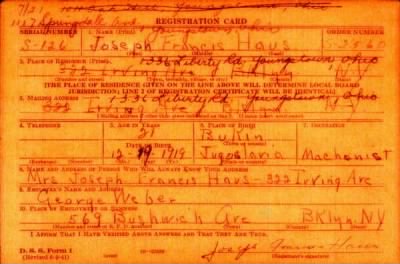 7/21
1127 Springdale Ave, Youngstown, Ohio
REGISTRATION CARD
SERIAL NUMBER 1. NAME (Print) ORDER NUMBER
S-126 Joseph Francis Haus S-3560
(First) (Middle) (Last)
2. PLACE OF RESIDENCE (Print) 1336 Liberty Rd. Youngstown Ohio
322 Irving Ave BKlyn NY
(THE PLACE OF RESIDENCE GIVEN ON THE LINE ABOVE WILL DETERMINE LOCAL BOARD
JURISDICTION; LINE 2 OF REGISTRATION CERTIFICATE WILL BE IDENTICAL)
3. MAILING ADDRESS 1336 Liberty Rd Youngstown Ohio
322 Irving Ave NY
4. TELEPHONE 5. AGE IN YEARS 6. PLACE OF BIRTH 7. OCCUPATION
21
DATE OF BIRTH
1919 Jugoslavia Machanist
8. NAME AND ADDRESS OF PERSON WHO WILL ALWAYS KNOW YOUR ADDRESS
Mrs Joseph Francis Haus 322 Irving Ave
9. EMPLOYER'S NAME AND ADDRESS
George Weber
10. PLACE OF EMPLOYMENT OR BUSINESS
569 Bushwick Ave BKlyn. NY
I AFFIRM THAT I HAVE VERIFIED ABOVE ANSWERS AND THAT THEY ARE TRUE.
D. S. S. Form 1
Joseph Francis Haus